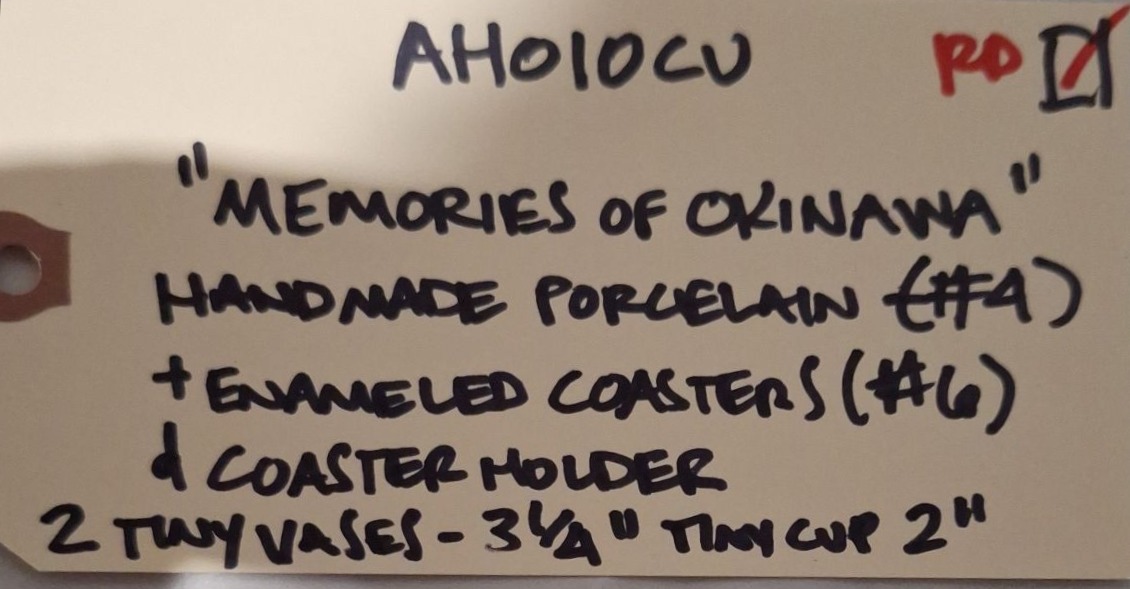 AHO10CU RD
"MEMORIES OF OKINAWA"
HANDMADE PORCELAIN (#4)
+ ENAMELED COASTERS (#6)
d COASTER HOLDER
2 TINY VASES - 3 1/4" TINY CUP 2"